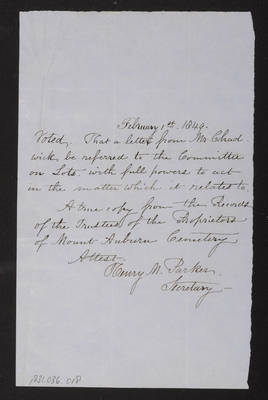 February 1st. 1849.
Voted, That a letter from Mr Chad-
wick be referred to the Committee
on Lots, with full powers to act
in the matter which it relates to.
A true copy from the Records
of the Trustees of the Proprietors
of Mount Auburn Cemetery
Attest
Henry M. Parker
Secretary
1831.036.018